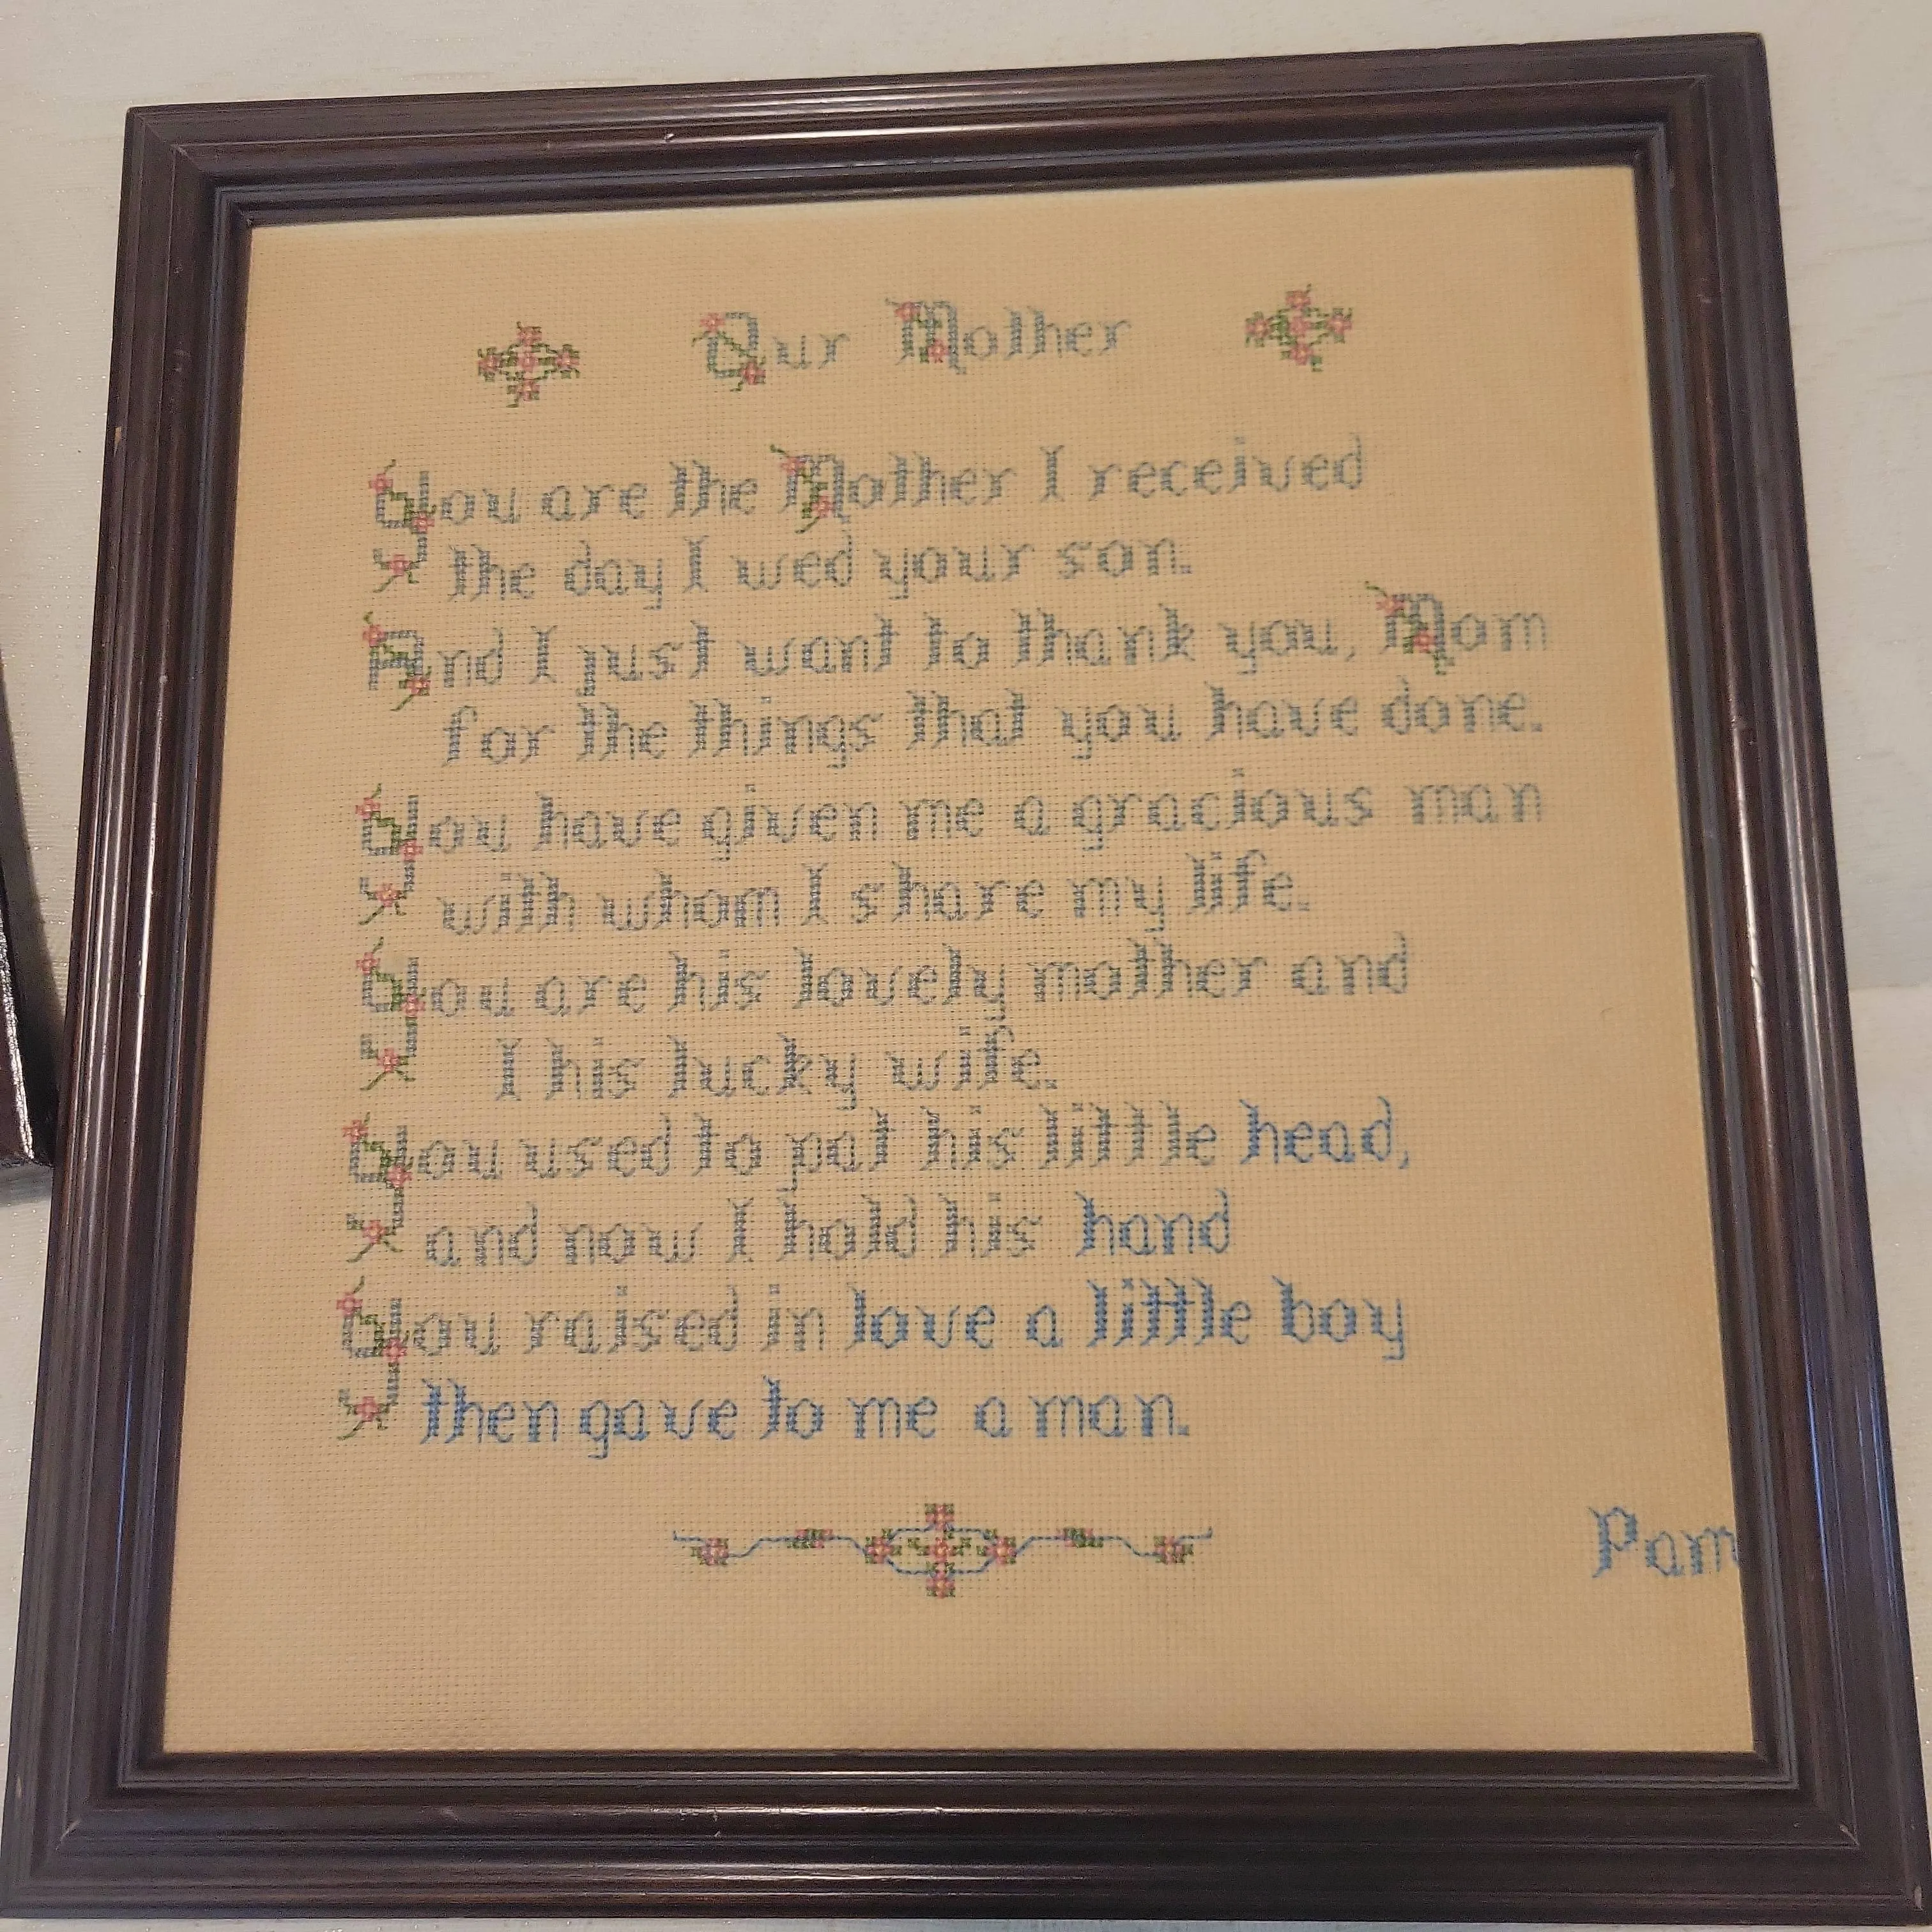 Our Mother
You are the Mother I received
the day I wed your son.
And I just want to thank you, Mom
for the things that you have done.
You have given me a gracious man
with whom I share my life.
You are his lovely mother and
I his lucky wife.
You used to pat his little head,
and now I hold his hand
You raised in love a little boy
then gave to me a man.
Pam